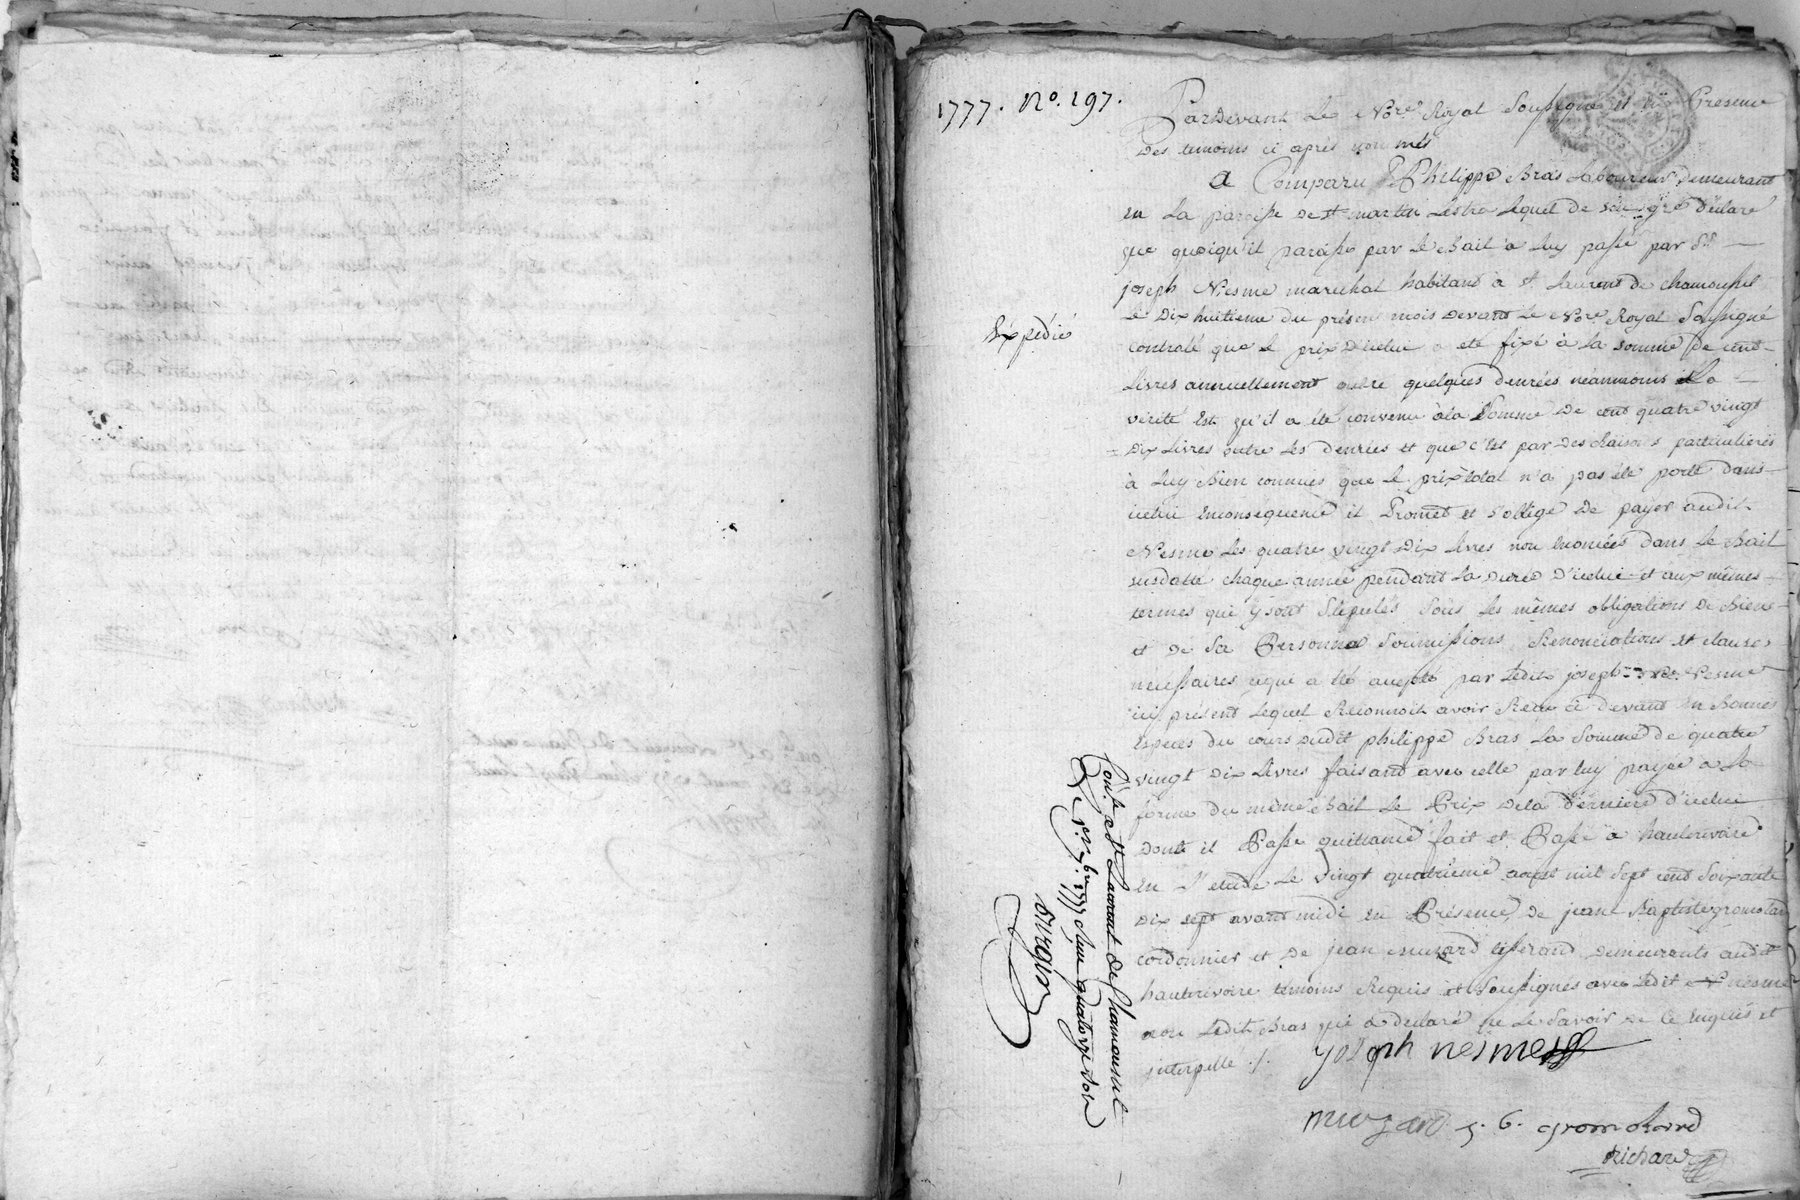 1777. No. 197.
Pardevant Le Nore Royal Soussigné et En Presence
Des temoins ci apres nommés
a Comparu Philippe Bras Laboureur Demeurant
en La paroisse De st martin Lestra Lequel de son gré declare
que quoiqu'il paroisse par Le bail à luy passé par Sr
joseph Nesme marechal habitant à st Laurent de chamousset
Expédié
Le Dix huitieme du présent mois Devant Le Nore Royal Soussigné
controlé que le prix D'icelui a eté fixé à La somme de cent
Livres annuellement outre quelques denrées néanmoins La
vérité Est qu'il a eté convenu à la Somme De cent quatre vingt
Dix Livres outre Les denrées et que c'est par Des raisons particulieres
à Luy Bien connues que Le prix total n'a pas eté porté dans
icelui Enconséquence il Promet et s'oblige De payer audit
Nesme Les quatre vingt Dix Livres non enoncées Dans Le Bail
susdatté chaque année pendant La durée D'icelui et aux mêmes
termes qui y sont Stipulés Sous Les mêmes obligations De Biens
et De Sa Personne Soumissions Renonciations et clauses
nécessaires ce que a eté accepté par Ledit joseph Nesme
ici présent Lequel Reconnoit avoir Recu ci devant En Bonnes
Especes du cours Dudit philippe Bras La Somme de quatre
vingt Dix Livres faisant avec celle par luy payée a La
forme du même bail Le Prix de la Derniere D'icelui
Dont il Passe quittance fait et Passé a hauterivoire
En L'etude Le vingt quatrieme aoust mil Sept cent Soixante
Dix sept avant midi En Présence de jean Baptiste gromolard
cordonnier et De jean muzard tisserand Demeurants audit
hauterivoire temoins Requis et Soussignés avec Ledit nesme
non Ledit Bras qui a declaré ne Le Savoir De Ce Enquis et
interpellé ./.
joseph nesme
muzard j. b. gromolard
Richard
Con.lé a St Laurent de Chamousset
Le 7bre 1777 Reçu quatorze sols